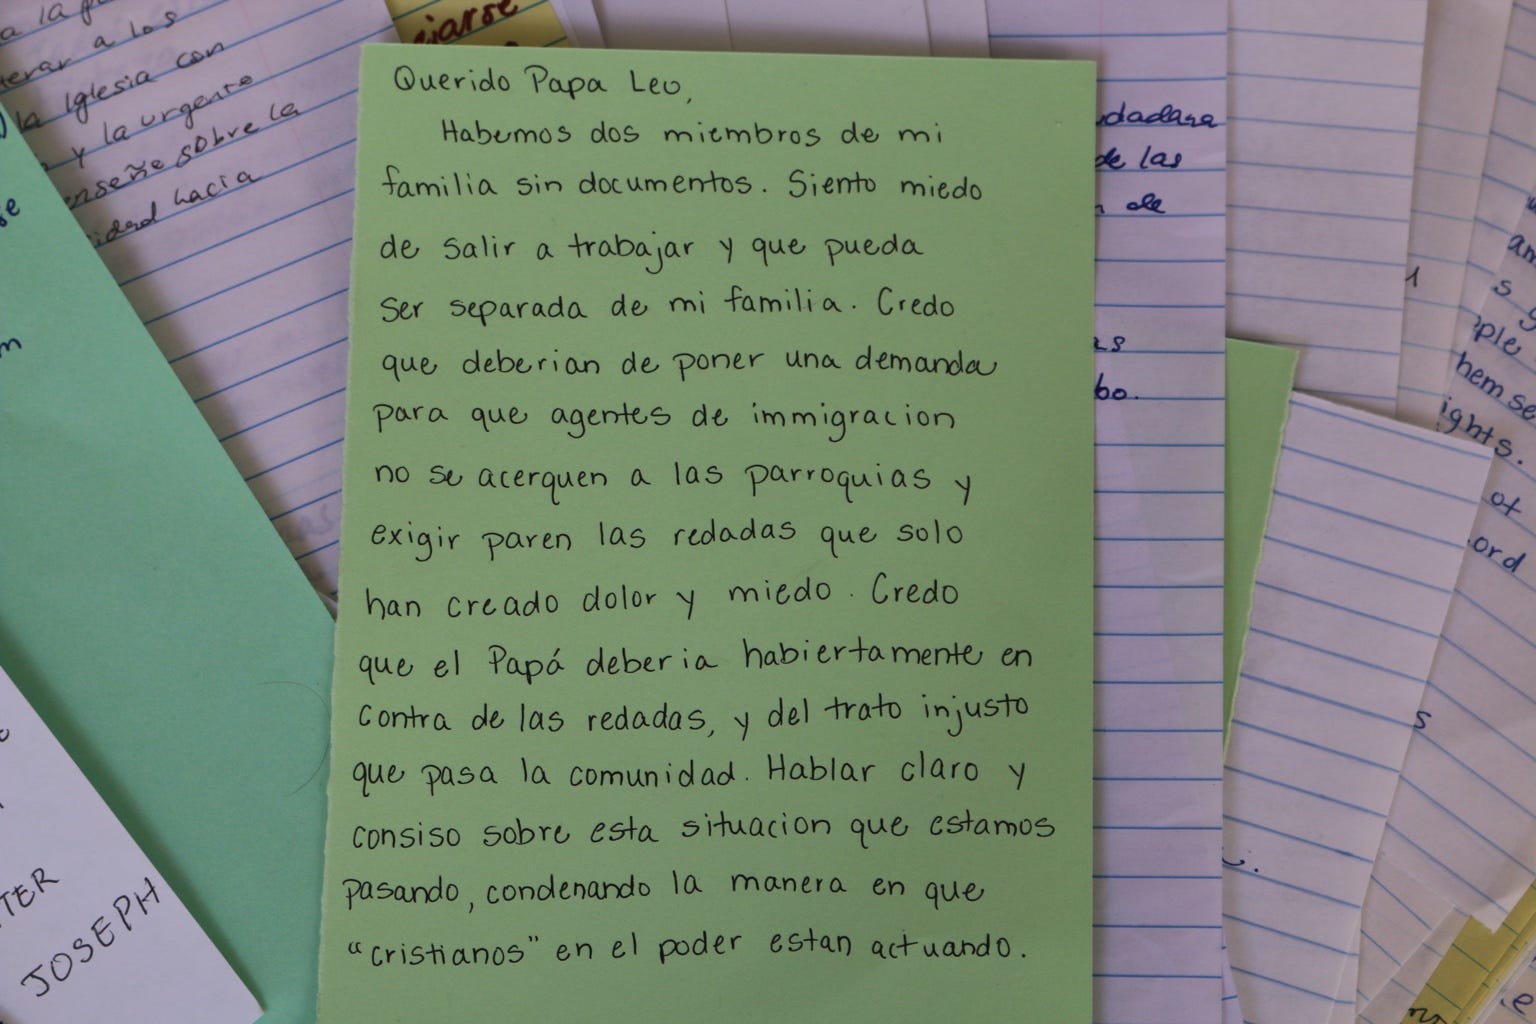 a la
a los
la Iglesia con
y la urgente
enseñe sobre la
hacia
Querido Papa Leo,
Habemos dos miembros de mi
familia sin documentos. Siento miedo
de salir a trabajar y que pueda
ser separada de mi familia. Credo
que deberian de poner una demanda
para que agentes de immigracion
no se acerquen a las parroquias y
exigir paren las redadas que solo
han creado dolor y miedo. Credo
que el Papá deberia habiertamente en
contra de las redadas, y del trato injusto
que pasa la comunidad. Hablar claro y
consiso sobre esta situacion que estamos
pasando, condenando la manera en que
"cristianos" en el poder estan actuando.
de las
de
bo.
s
ple
hemse
ights.
ot
ord
s
TER
JOSEPH